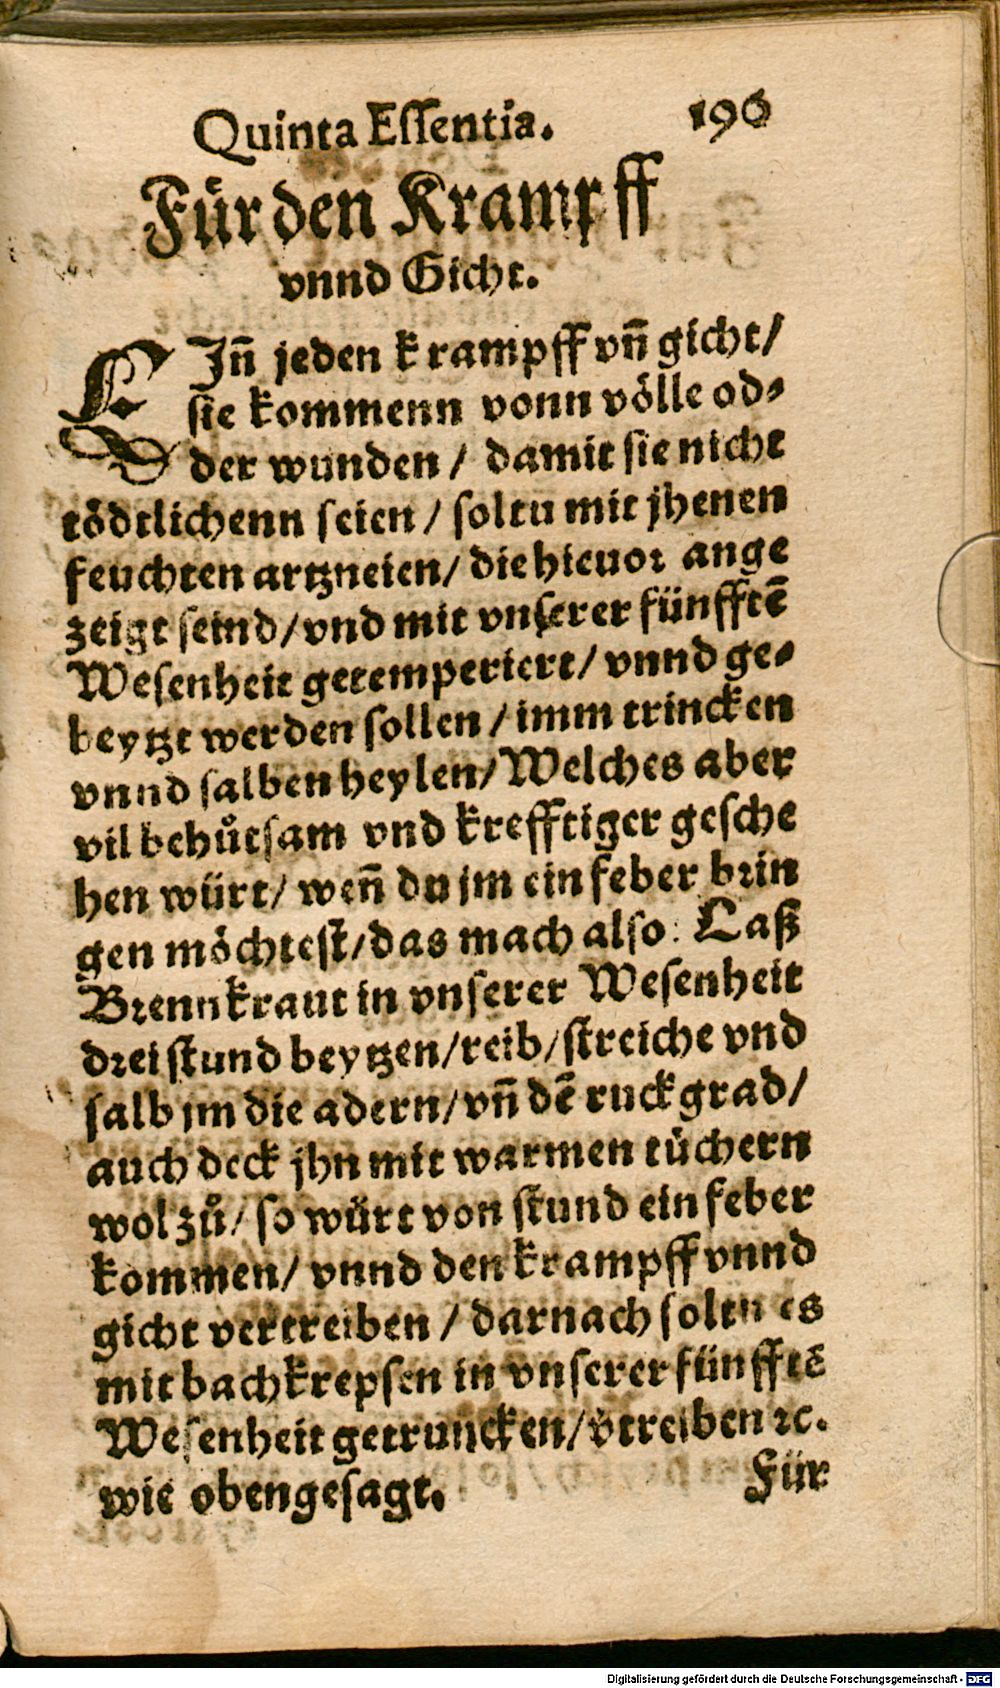 Quinta Eſſentia. 196
Für den Krampff
vnnd Gicht.
EJn̄ jeden krampff vn̄ gicht/
ſie kommenn vonn völle od⸗
der wunden / damit ſie nicht
tödtlichenn ſeien / ſoltu mit jhenen
feuchten artzneien/ die hieuor ange
zeigt ſeind/vnd mit vnſerer fünfftē
Weſenheit getemperiert/ vnnd ge⸗
beytzt werden ſollen / imm trincken
vnnd ſalben heylen/Welches aber
vil behůtſam vnd krefftiger geſche
hen würt/ wen̄ du jm ein feber brin
gen möchteſt/das mach alſo: Laß
Brennkraut in vnſerer Weſenheit
drei ſtund beytzen/reib/ſtreiche vnd
ſalb jm die adern/vn̄ dē ruckgrad/
auch deck jhn mit warmen tüchern
wol zů/ ſo würt von ſtund ein feber
kommen/ vnnd den krampff vnnd
gicht vertreiben / darnach ſoltu es
mit bachkrepſen in vnſerer fünfftē
Weſenheit getruncken/v̄treiben ꝛc.
wie obengeſagt.
Für
Digitalisierung gefördert durch die Deutsche Forschungsgemeinschaft - DFG